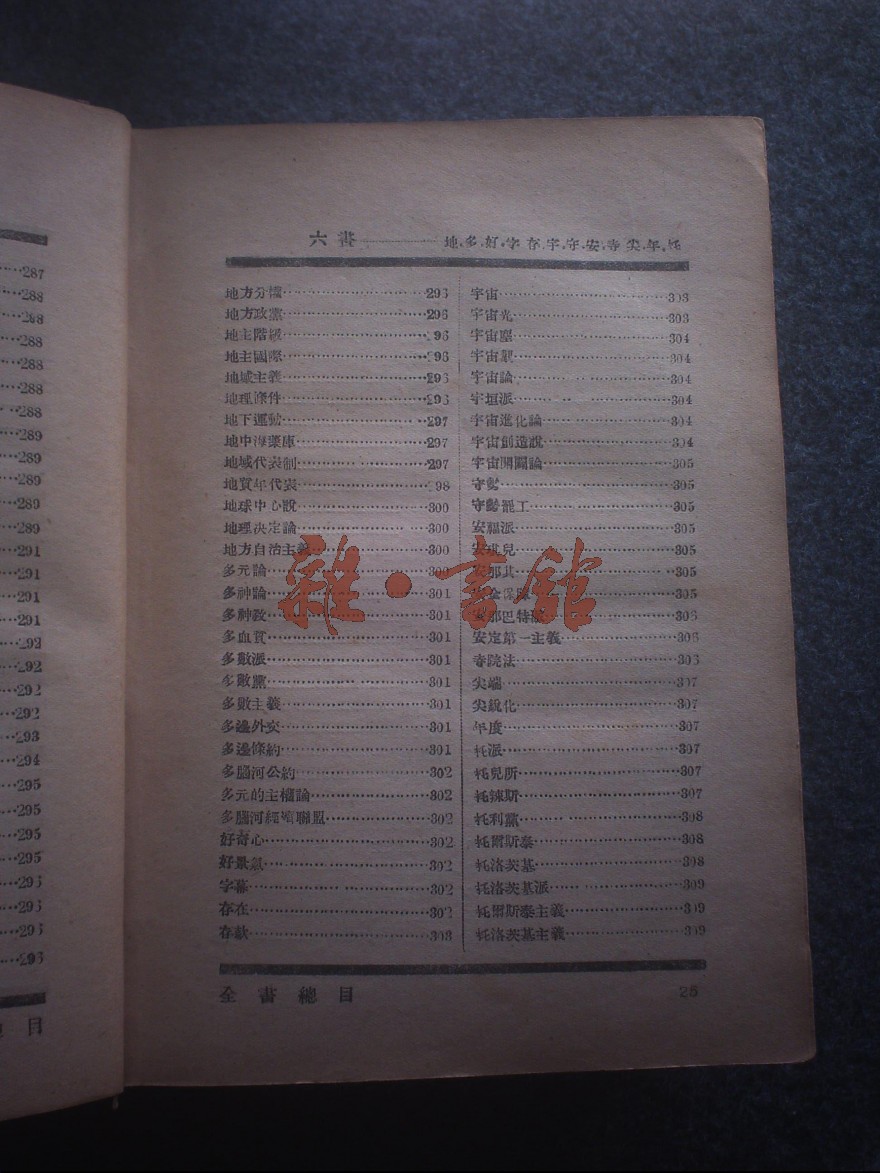 287
288
288
288
288
288
288
289
289
289
289
289
291
291
291
291
292
292
292
292
293
294
295
295
295
295
293
293
293
293
目
六畫 地,多,好,字,存,宇,守,安,寺,尖,年,托
地方分權 293
地方政黨 296
地主階級 96
地主國際 96
地域主義 296
地理條件 296
地下運動 297
地中海業庫 297
地域代表制 297
地質年代表 98
地球中心說 300
地理決定論 300
地方自治主義 300
多元論 300
多神論 301
多神政 301
多血質 301
多數派 301
多數黨 301
多數主義 301
多邊外交 301
多邊條約 301
多腦河公約 302
多元的主權論 302
多腦河經濟聯盟 302
好奇心 302
好景氣 302
字幕 302
存在 302
存款 303
宇宙 303
宇宙光 303
宇宙塵 304
宇宙觀 304
宇宙論 304
宇垣派 304
宇宙進化論 304
宇宙創造說 304
宇宙開闢論 305
守勢 305
守勢罷工 305
安福派 305
安琪兒 305
安那其 305
安全保障 305
安那巴特派 306
安定第一主義 306
寺院法 306
尖端 307
尖銳化 307
年度 307
托派 307
托兒所 307
托辣斯 307
托利黨 308
托爾斯泰 308
托洛茨基 308
托洛茨基派 309
托爾斯泰主義 309
托洛茨基主義 309
全書總目 25
雜·書館